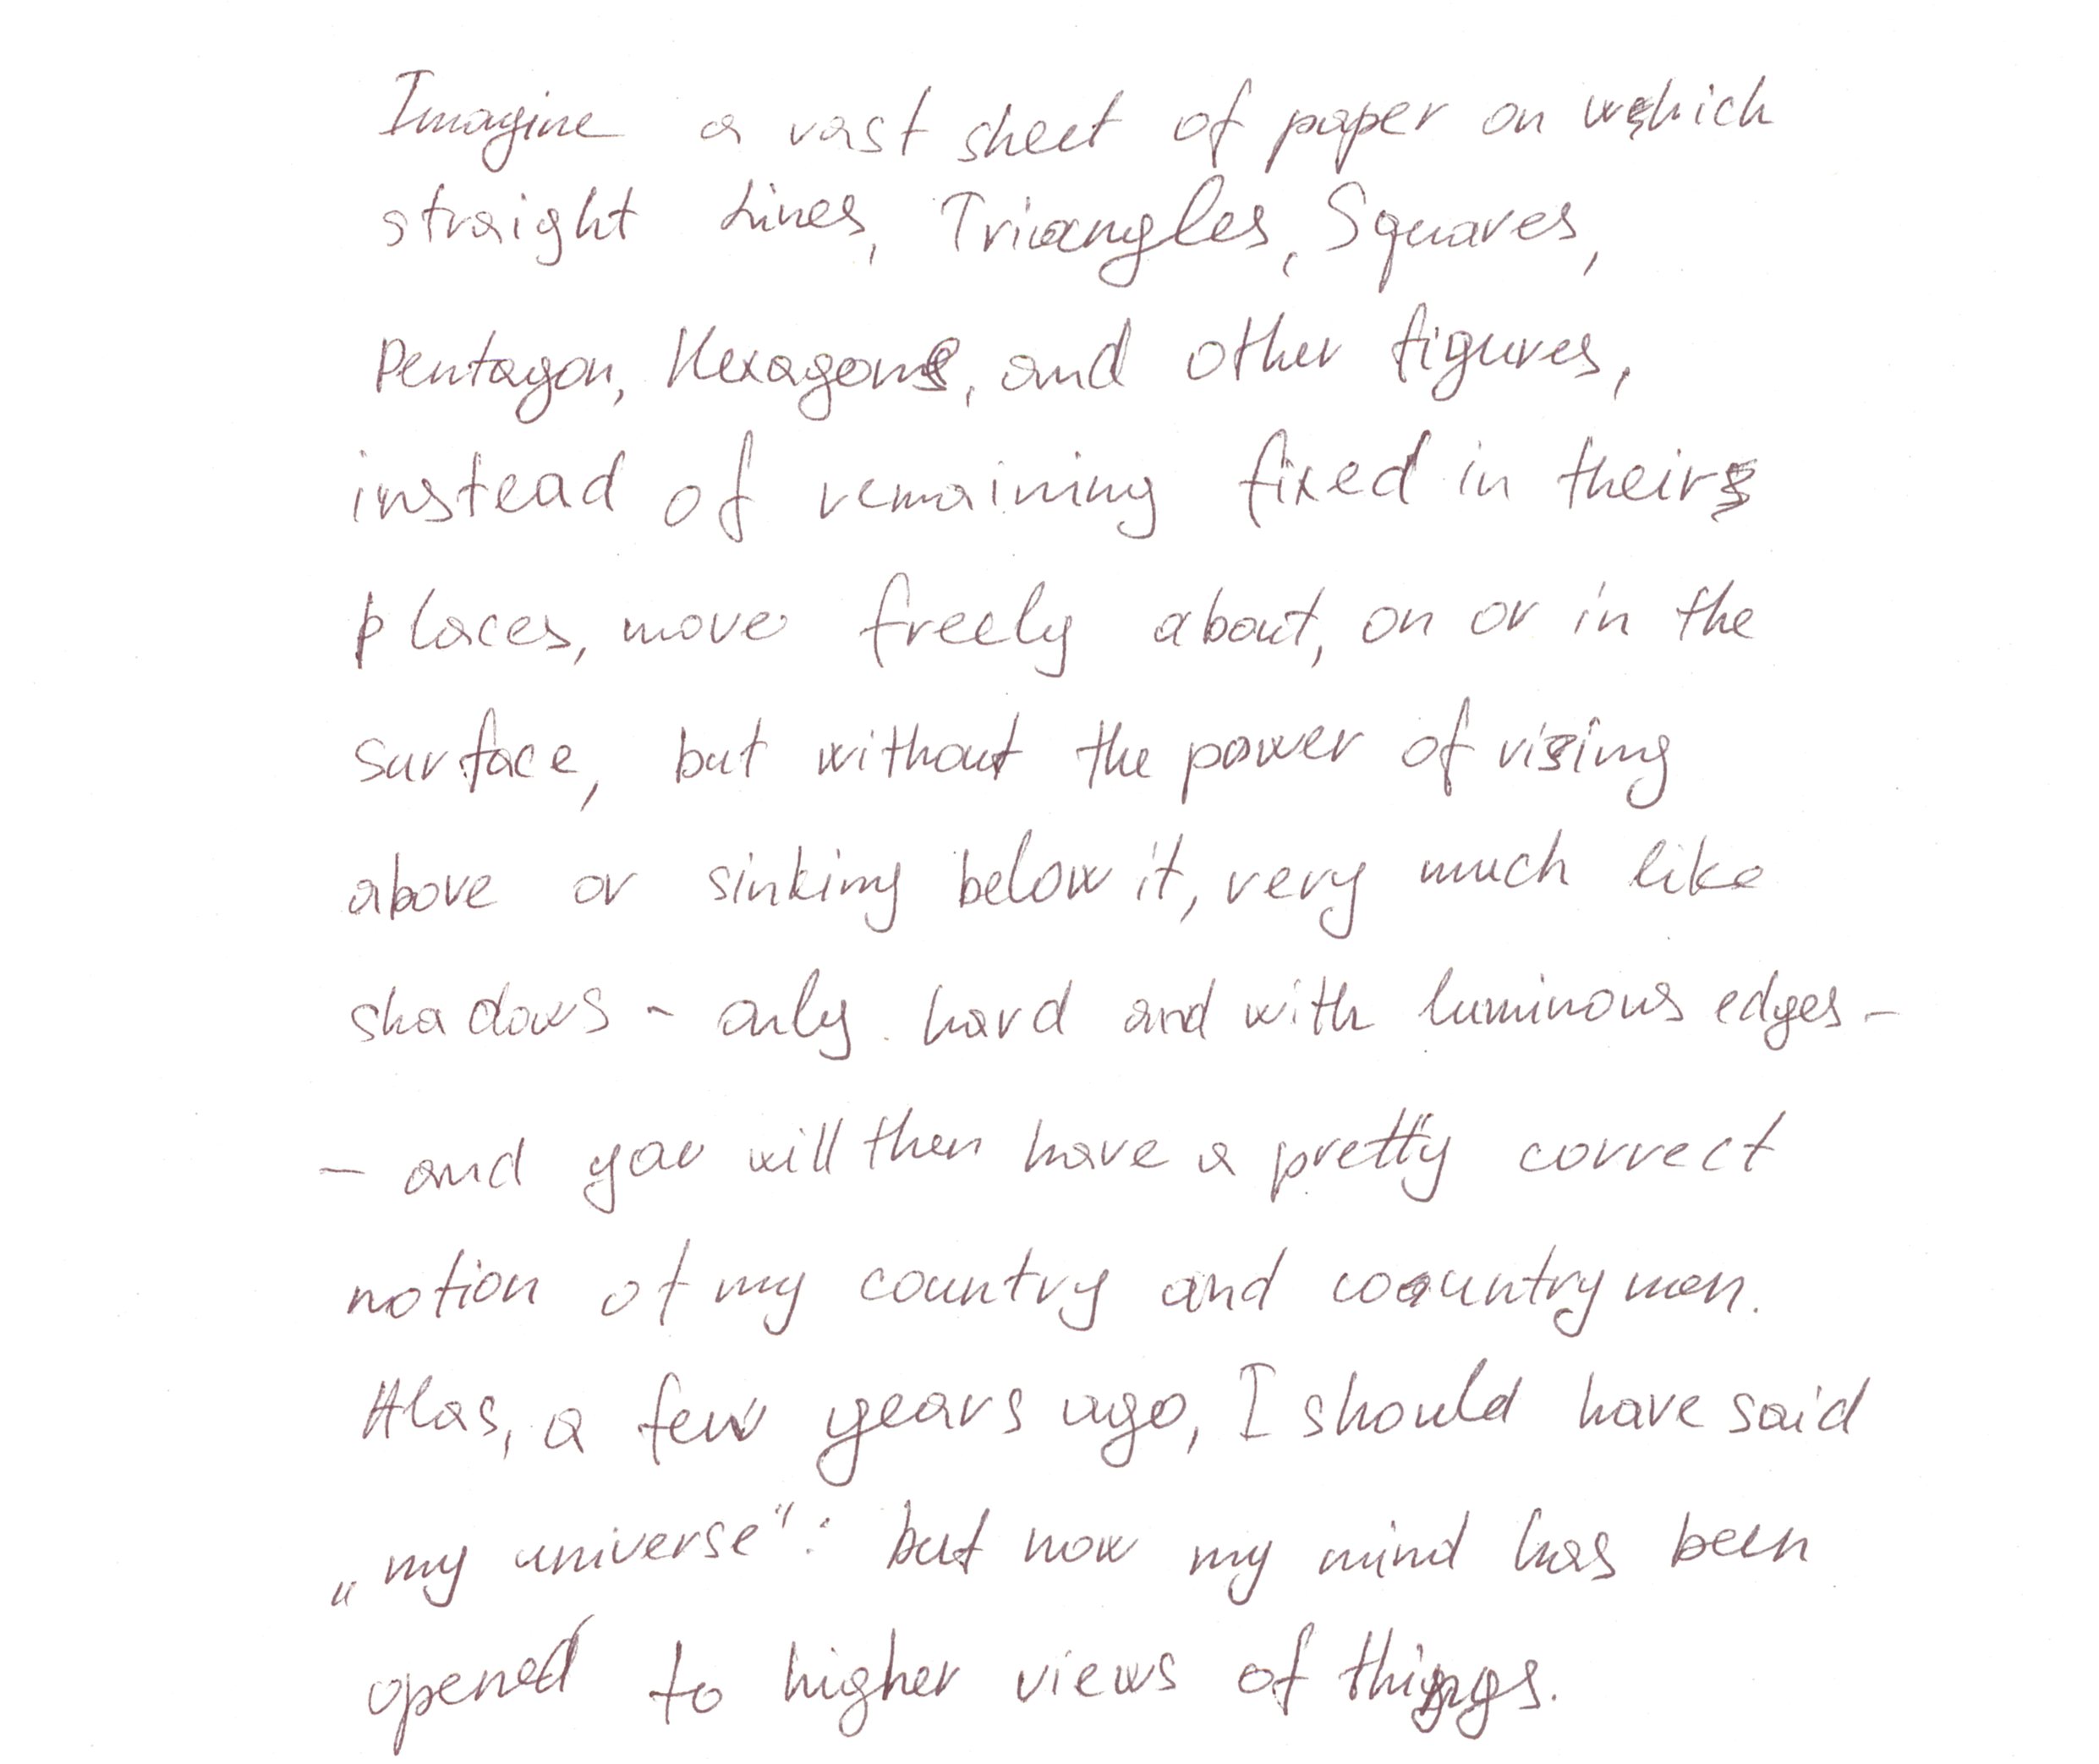 Imagine a vast sheet of paper on which
straight Lines, Triangles, Squares,
Pentagon, Hexagons, and other figures,
instead of remaining fixed in their
places, move freely about, on or in the
surface, but without the power of rising
above or sinking below it, very much like
shadows - only hard and with luminous edges -
- and you will then have a pretty correct
notion of my country and countrymen.
Alas, a few years ago, I should have said
„my universe“: but now my mind has been
opened to higher views of things.